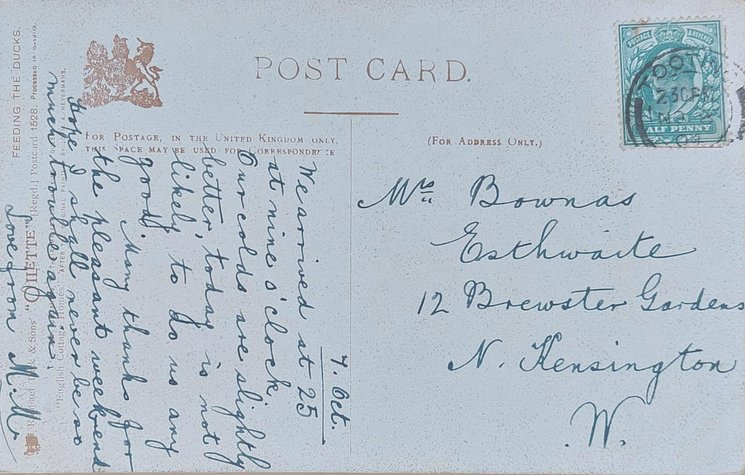 POST CARD.
FOR POSTAGE, IN THE UNITED KINGDOM ONLY,
THIS SPACE MAY BE USED FOR CORRESPONDENCE
(FOR ADDRESS ONLY.)
POSTAGE & REVENUE
HALF PENNY
TOOTING
Mrs Bownas
Esthwaite
12 Brewster Gardens
N. Kensington
W.
7. Oct.
We arrived at 25
at nine o'clock.
Our colds are slightly
better; today is not
likely to do us any
good!
Many thanks for
the pleasant weekend
Hope I shall never be so
much trouble again.
Love from M.M.
FEEDING THE DUCKS.
Raphael Tuck & Sons' "OILETTE" [Regd.] Postcard 1528. Processed in Bavaria.
"English Cottage Homes." AFTER HEYERMANS.